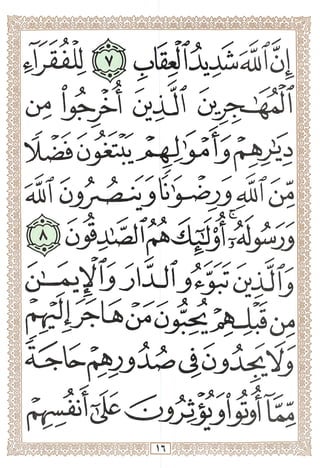 إِنَّ ٱللَّهَ شَدِيدُ ٱلْعِقَابِ ٧ لِلْفُقَرَآءِ
ٱلْمُهَٰجِرِينَ ٱلَّذِينَ أُخْرِجُوا۟ مِن
دِيَٰرِهِمْ وَأَمْوَٰلِهِمْ يَبْتَغُونَ فَضْلًا
مِّنَ ٱللَّهِ وَرِضْوَٰنًا وَيَنصُرُونَ ٱللَّهَ
وَرَسُولَهُۥٓ ۚ أُو۟لَٰٓئِكَ هُمُ ٱلصَّٰدِقُونَ ٨
وَٱلَّذِينَ تَبَوَّءُو ٱلدَّارَ وَٱلْإِيمَٰنَ
مِن قَبْلِهِمْ يُحِبُّونَ مَنْ هَاجَرَ إِلَيْهِمْ
وَلَا يَجِدُونَ فِى صُدُورِهِمْ حَاجَةً
مِّمَّآ أُوتُوا۟ وَيُؤْثِرُونَ عَلَىٰٓ أَنفُسِهِمْ
١٦